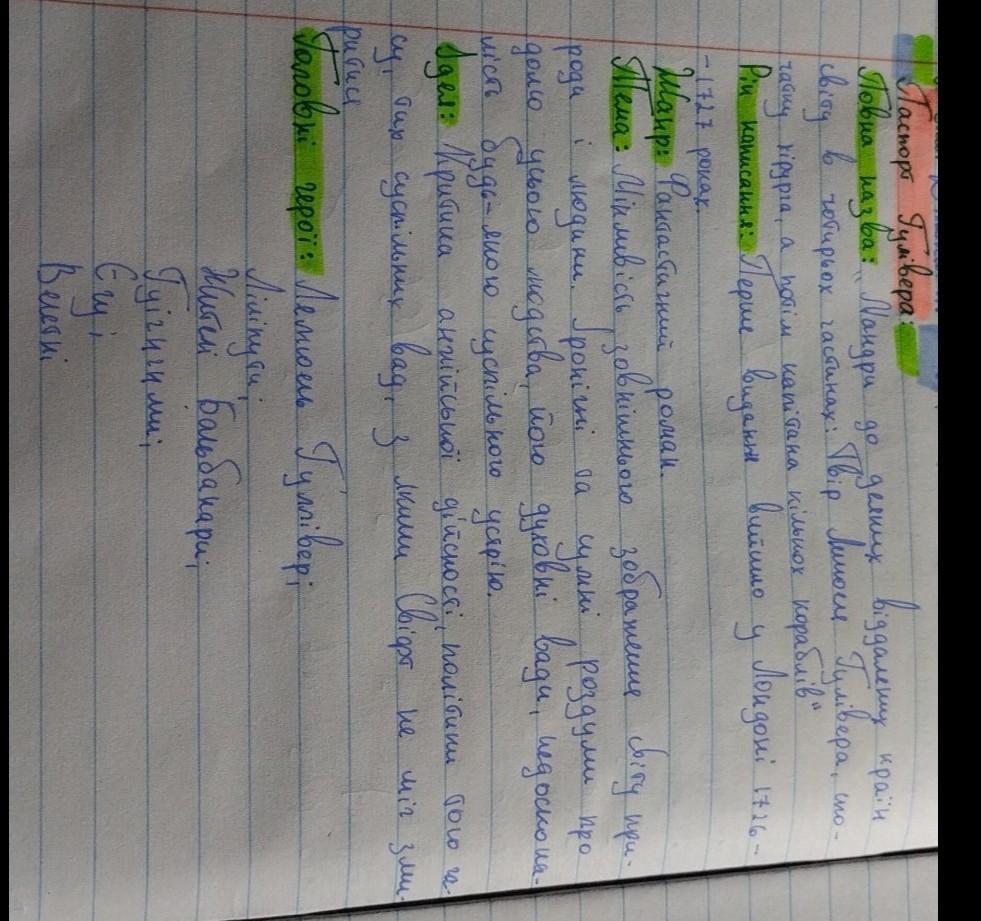 Паспорт Гулівера:
Повна назва: „Мандри до деяких віддалених країн
світу в чотирьох частинах: Твір Лемюеля Гулівера, спо-
чатку хірурга, а потім капітана кількох кораблів"
Рік написання: Перше видання вийшло у Лондоні 1726-
-1727 роках.
Жанр: Фантастичний роман.
Тема: Мінливість зовнішнього зображення світу при-
роди і людини. Іронічні та сумні роздуми про
долю усього людства, його духовні вади, недоскона-
лість будь-якого суспільного устрію.
Ідея: Критика англійської дійсності, політики того ча-
су, тих суспільних вад, з якими Свіфт не міг зми-
ритися
Головні герої: Лемюель Гуллівер;
Ліліпути;
Жителі Бальбанарі;
Гуїгнгнми;
Єгу;
Велетні